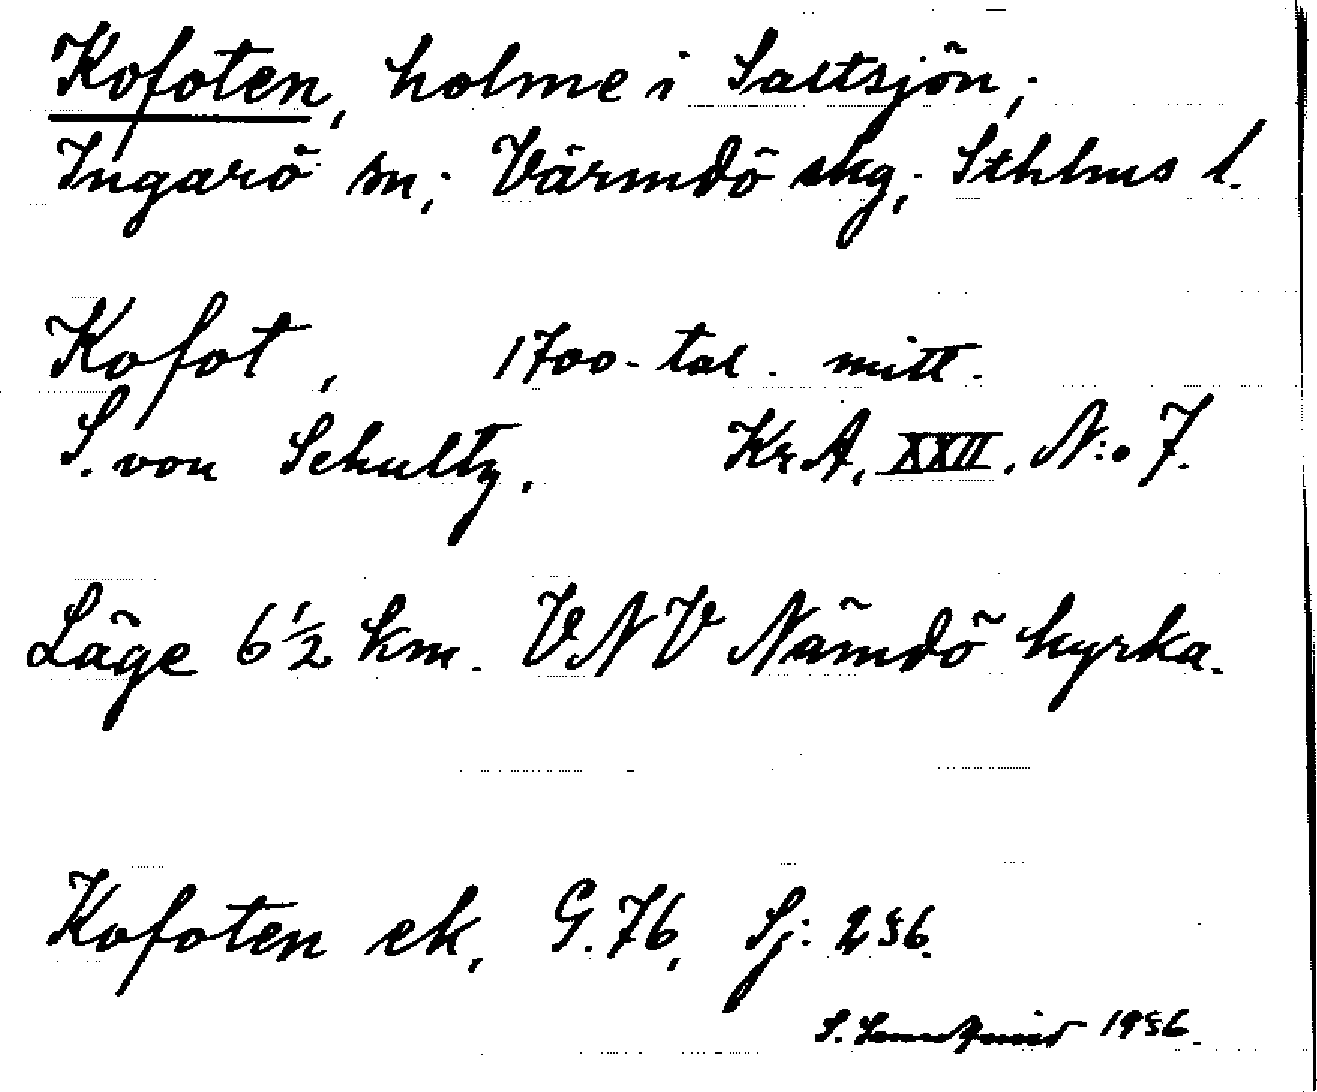 Kofoten, holme i Saltsjön;
Ingarö sn; Värmdö skg; Sthlms l.
Kofot, 1700-tal. mitt.
S. von Schultz, Kr.A. XXII. N:o 7.
Läge 6 1/2 km. VNV Nämdö kyrka.
Kofoten ek, G.76, Sj: 256.
S. 1956.